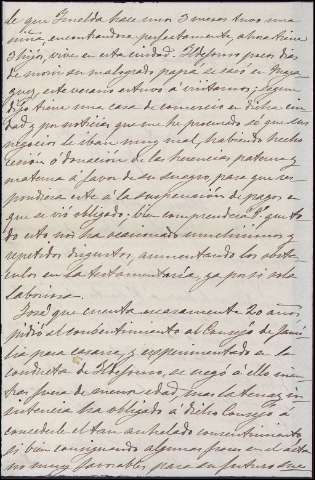 le que Imelda hace unos 3 meses tuvo una
niña, encontrandose perfectamente, ahora tiene
3 hijos, vive en esta ciudad. Ildefonso pocos dias
de morir su malogrado papá se casó en Maya
guez, este verano estuvo á visitarnos; segun
dijo tiene una casa de comercio en dicha ciu
dad y por noticias que me he procurado sé que sus
negocios le iban muy mal, habiendo hecho
cesión ó donacion de las herencias paterna y
materna á favor de su suegro, para que res
pondiera este á la suspensión de pagos en
que se vió obligado; bien comprenderá Vd. que to
do esto nos ha ocasionado muchisimos y
repetidos disgustos, aumentando los obstá
culos en la testamentaría, ya por si sola
laboriosa.
José que cuenta escasamente 20 años,
pidió al consentimiento al Consejo de fami
lia para casarse, y experimentado en la
conducta de Ildefonso, se negó á ello mien
tras fuera de menor edad, mas la tenaz in
sistencia ha obligado á dicho Consejo á
concederle el tan anhelado consentimiento,
si bien consignando algunas frases en el acta
no muy favorables para su futuro sue